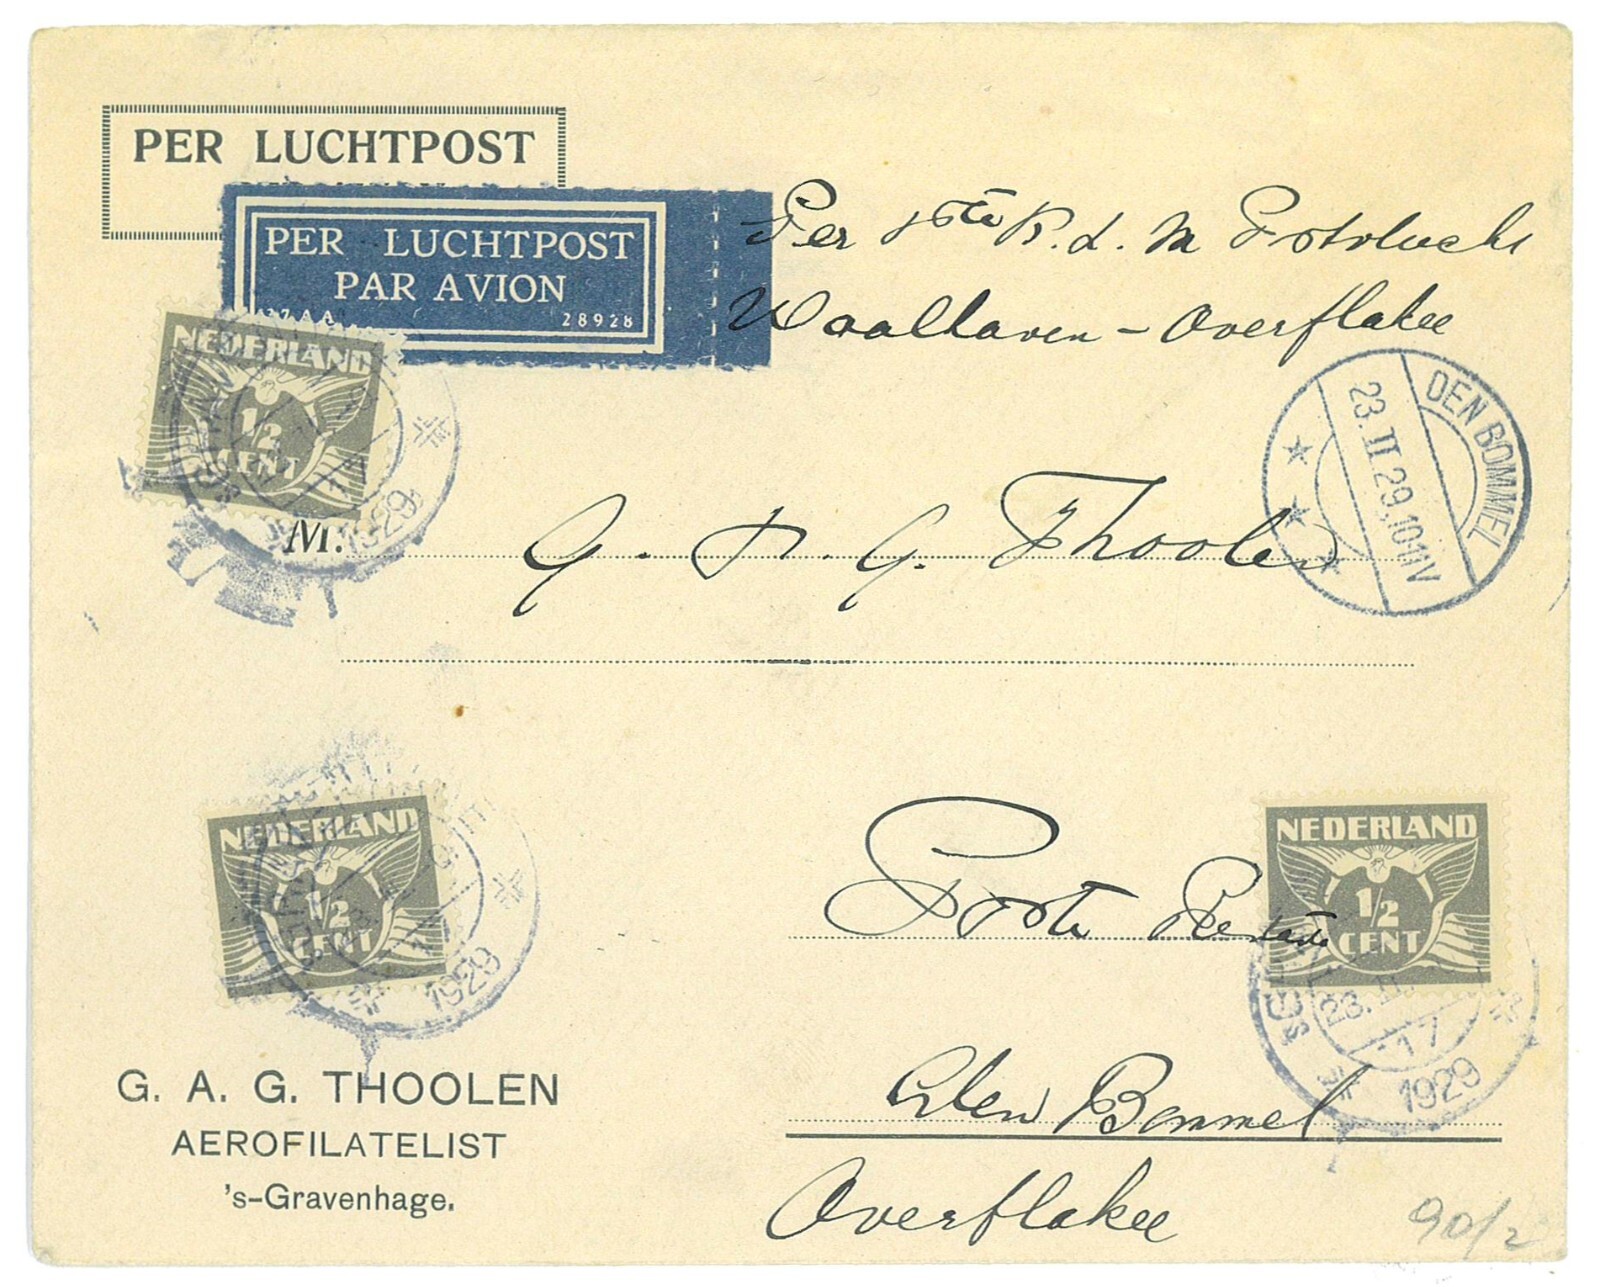 PER LUCHTPOST
PER LUCHTPOST
PAR AVION
37 A A 28928
Per 1ste K. L. M Postvlucht
Waalhaven - Overflakee
NEDERLAND
1/2
CENT
1929
DEN BOMMEL
23.II.29.10-11V
M.
G. A. G. Thoolen
NEDERLAND
1/2
CENT
1929
NEDERLAND
1/2
CENT
23.II.
17
1929
Poste Restante
Den Bommel
Overflakee
G. A. G. THOOLEN
AEROFILATELIST
's-Gravenhage.
90/2